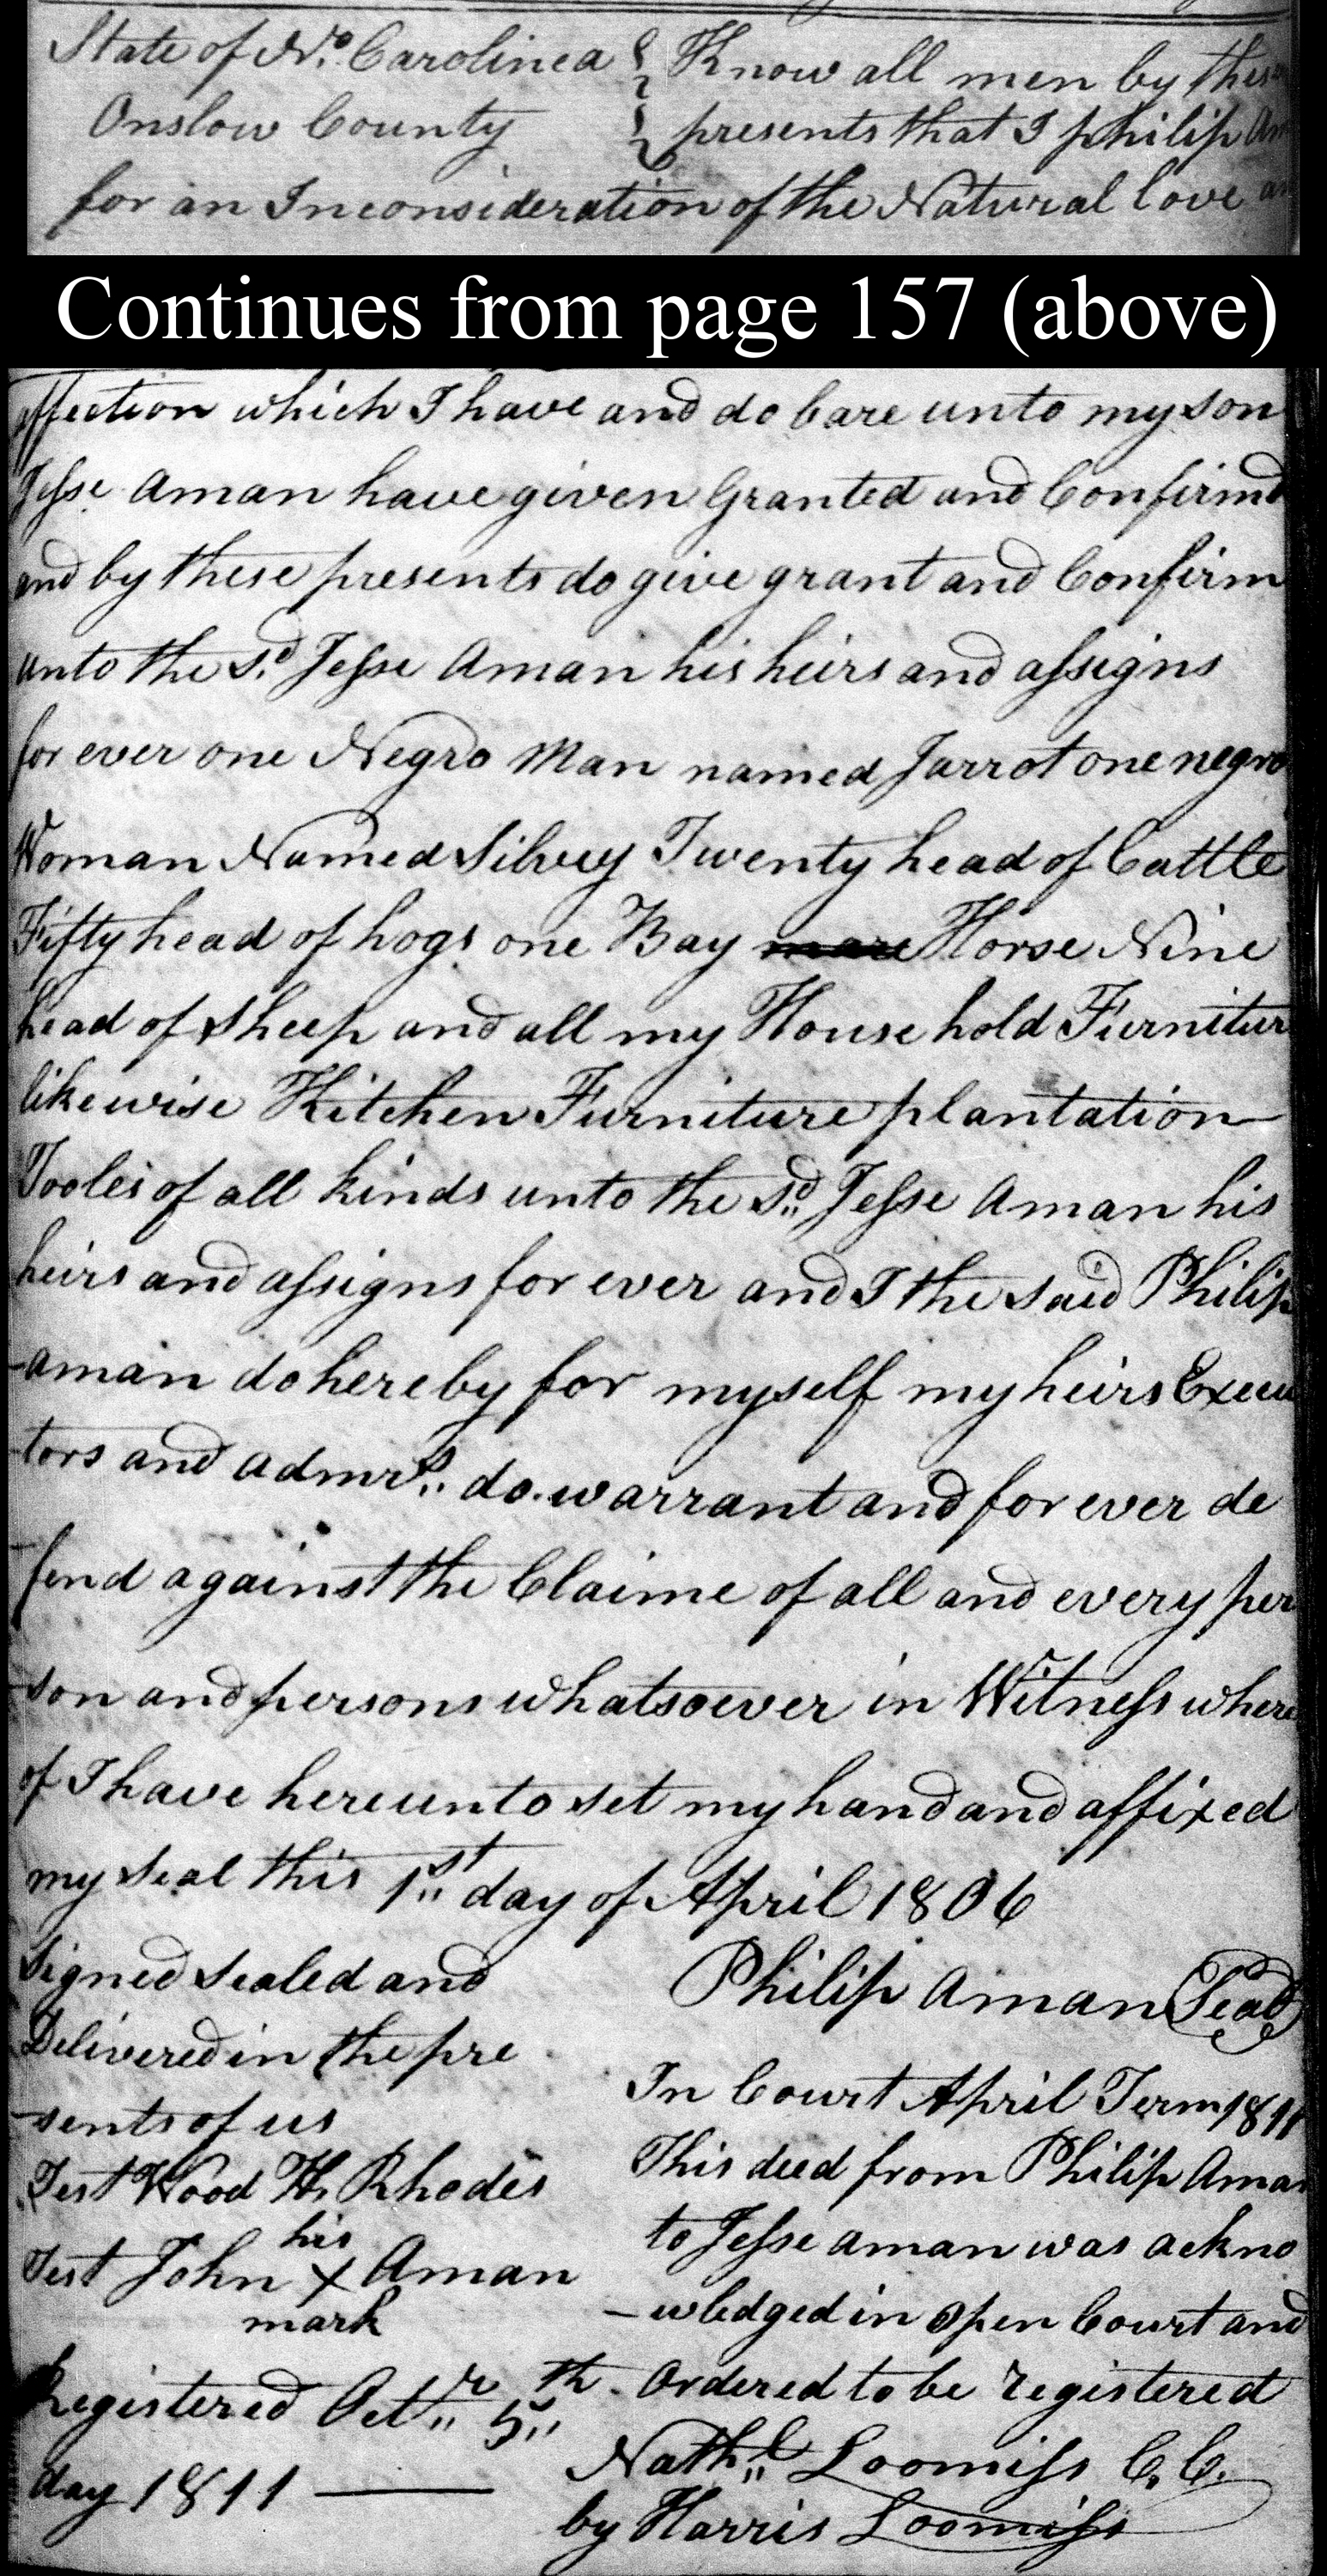 State of No. Carolinea } Know all men by these
Onslow County } presents that I philip Am
for an Inconsideration of the Natural love an
Continues from page 157 (above)
affection which I have and do bare unto my son
Jesse Aman have given Granted and Confirmd
and by these presents do give grant and Confirm
unto the sd. Jesse Aman his heirs and assigns
for ever one Negro Man named Jarrot one negro
Woman Named Silvey Twenty head of Cattle
Fifty head of hogs one Bay mare Horse Nine
head of sheep and all my House hold Furnitur
likewise Kitchen Furniture plantation
Tooles of all kinds unto the sd. Jesse Aman his
heirs and assigns for ever and I the said Philip
aman do hereby for myself my heirs Execu
tors and admrs. do warrant and for ever de
fend against the Claime of all and every per
son and persons whatsoever in Witness where
of I have hereunto set my hand and affixed
my seal this 1st day of April 1806
Signed sealed and
Delivered in the pre
-sents of us
Test Wood H. Rhodes
his
Test John x Aman
mark
Registered Octr. 5th
day 1811
Philip Aman Seal
In Court April Term 1811
This deed from Philip Aman
to Jesse aman was ackno
-wledged in open Court and
ordered to be registered
Nathl. Loomiss C. C.
by Harris Loomiss